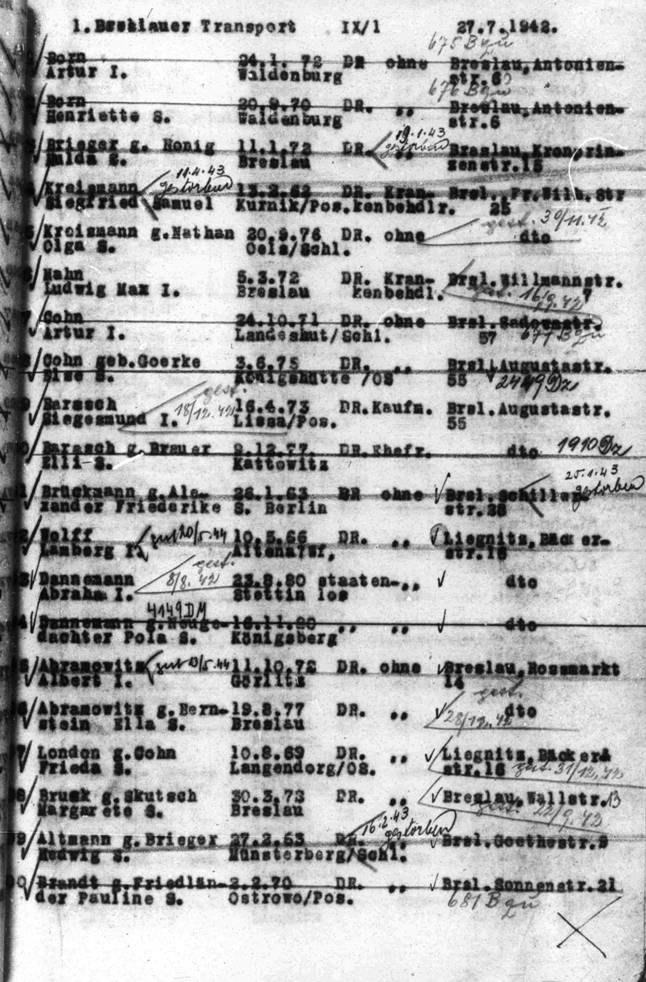 1. Breslauer Transport IX/1 27.7.1942.
675 Bgü
Born 24.1. 72 DR ohne Breslau,Antonien-
Artur I. Waldenburg str.6
676 Bgü
Born 20.9.70 DR. ,, Breslau,Antonien-
Henriette S. Waldenburg str.6
19.1.43
gestorben
Brieger g. Honig 11.1.72 DR. ,, Breslau Kronprin-
Hulda S. Breslau zenstr.15
11.4.43
gestorben
Kreismann 13.2.62 DR. Kran- Brsl. Fr.Wilh.Str
Siegfried Samuel Kurnik/Pos.kenbehdlr. 25
gest. 30/11.42
Kreismann g.Nathan 20.9.76 DR. ohne dto
Olga S. Oels/Schl.
Hahn 5.3.72 DR. Kran- Brsl.Willmannstr.
Ludwig Max I. Breslau kenbehdl. 7
gest. 16/9.42
Cohn 24.10.71 DR. ohne Brsl.Sadowastr.
Artur I. Landeshut/Schl. 57
677 Bgü
Cohn geb.Goerke 3.6.75 DR. ,, Brsl.Augustastr.
Else S. Königshütte /OS 55 2449 Dz
gest.
18/12.42
Barasch 16.4.73 DR.Kaufm. Brsl.Augustastr.
Siegesmund I. Lissa/Pos. 55
Barasch g.Brauer 9.12.77 DR.Ehefr. dto 1910 Dz
Elli S. Kattowitz
25.1.43
gestorben
Brückmann g.Ale- 26.1.63 DR ohne Brsl.Schiller
xander Friederike S. Berlin str.28
Wolff 20/5.44 10.5.66 DR. ,, Liegnitz, Bäcker-
Lamberg I. str.16
gest.
8/8.42
Dannemann 23.8.80 staaten- ,, dto
Abraham I. Stettin los
4149 DM
Dannemann g.Neuge- 16.11.80 ,, ,, dto
dachter Pola S. Königsberg
Abramowitz 20/5.44 11.10.72 DR. ohne Breslau,Rossmarkt
Albert I. Görlitz 14
gest.
Abramowitz g.Bern- 19.8.77 DR. ,, dto
stein Ella S. Breslau 28/12.42
London g.Cohn 10.8.69 DR. ,, Liegnitz,Bäcker
Frieda S. Langendorg/OS. str.16 gest. 31/12.42
Bruck g.Skutsch 30.3.73 DR. ,, Breslau,Wallstr.13
Margarete S. Breslau gest. 22/9.42
16.2.43
gestorben
Altmann g.Brieger 27.2.63 DR. Brsl.Goethestr.9
Hedwig S. Münsterberg/Schl.
Brandt g.Friedlän- 2.2.70 DR. ,, Brsl.Sonnenstr.21
der Pauline S. Ostrowo/Pos.
681 Bgü